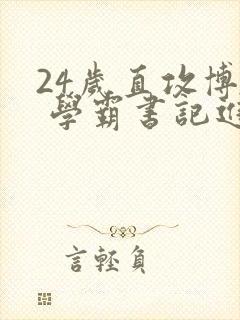 24歲直攻博
學霸書記
言輕負